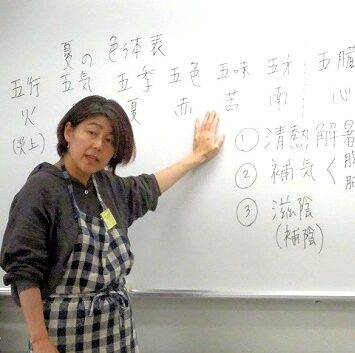 夏の 色体表
五行 五気 五季 五色 五味 五方 五臓
火 夏 赤 苦 南 心
(炎上)
① 清熱解暑
② 補気
③ 滋陰
(補陰)